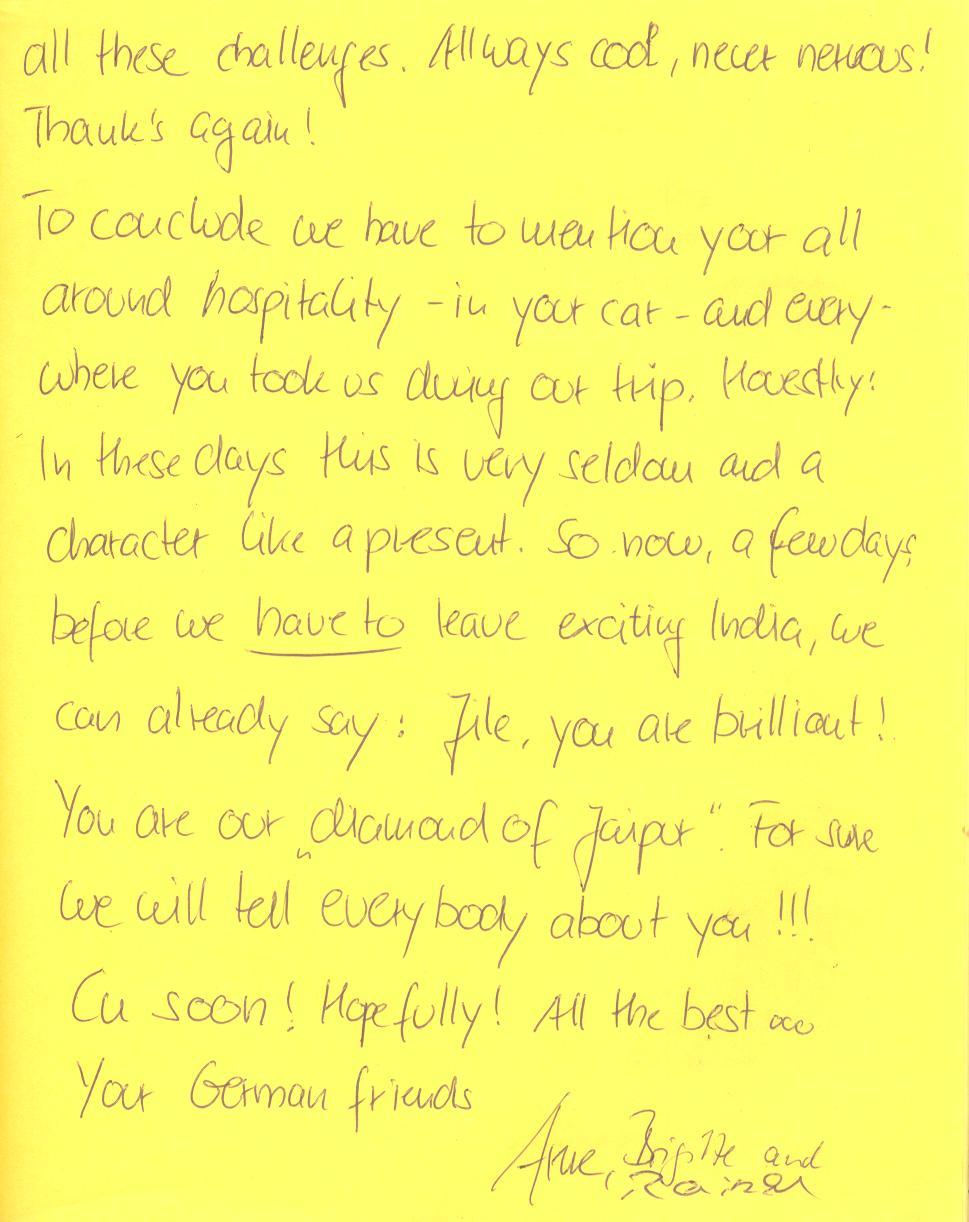 all these challenges. Allways cool, never nervous!
Thank's again!
To conclude we have to mention your all
around hospitality - in your car - and every-
where you took us during our trip. Honestly:
In these days this is very seldom and a
character like a present. So now, a few days
before we have to leave exciting India, we
can already say: Jile, you are brilliant!
You are our „diamond of Jaipur“. For sure
we will tell everybody about you!!!
Cu soon! Hopefully! All the best ooo
Your German friends
Arne, Brigitte and
Rainer